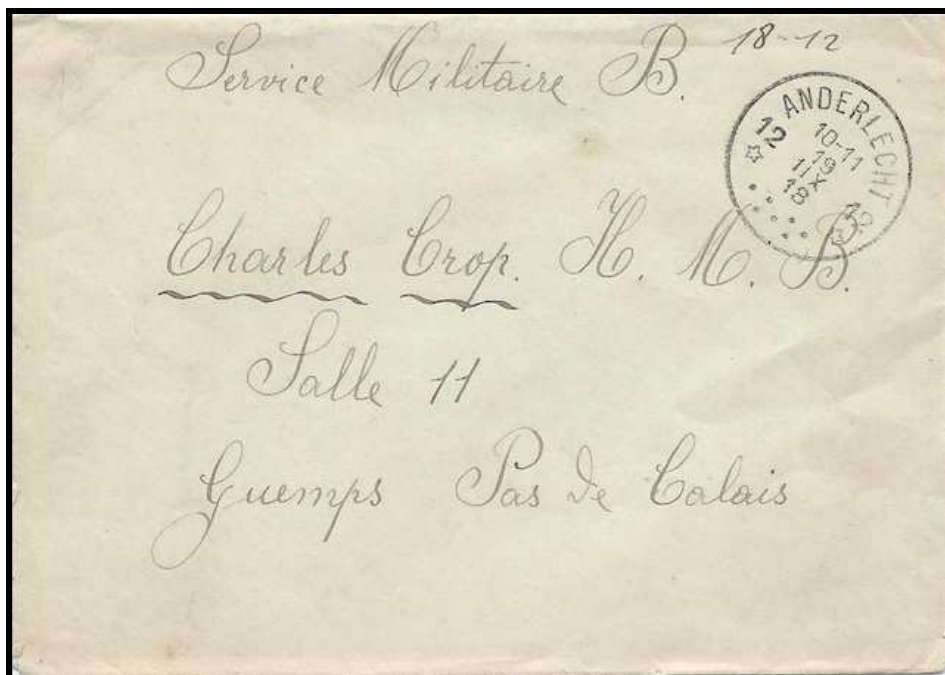 18-12
Service Militaire B.
ANDERLECHT
12 12
10-11
19
XII
18
Charles Crop. H. M. B.
Salle 11
Guemps Pas de Calais